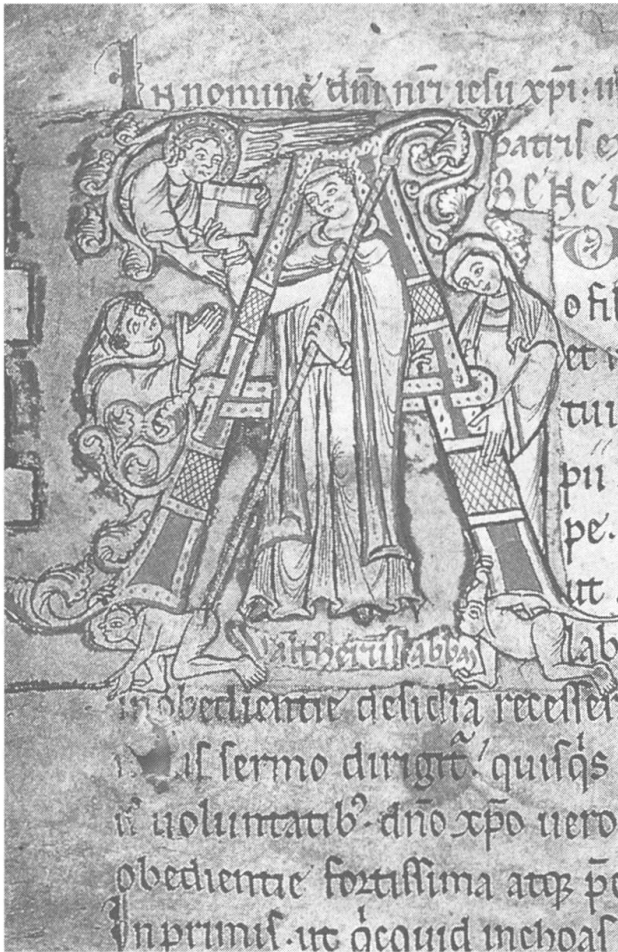 In nomine dñi nr̃i iesu xp̃i. in
patris ex
BENE
o fil
et
tui
pii
pe.
ut
Waltherus abbas
lab
inobedientie desidiã recesser
sermo dirigit̃ quisq̃s
uoluntatib᾽ dño xp̃o uero
obedientie fortissima atqꝫ p̃
In primis. ut q̃cquid inchoas